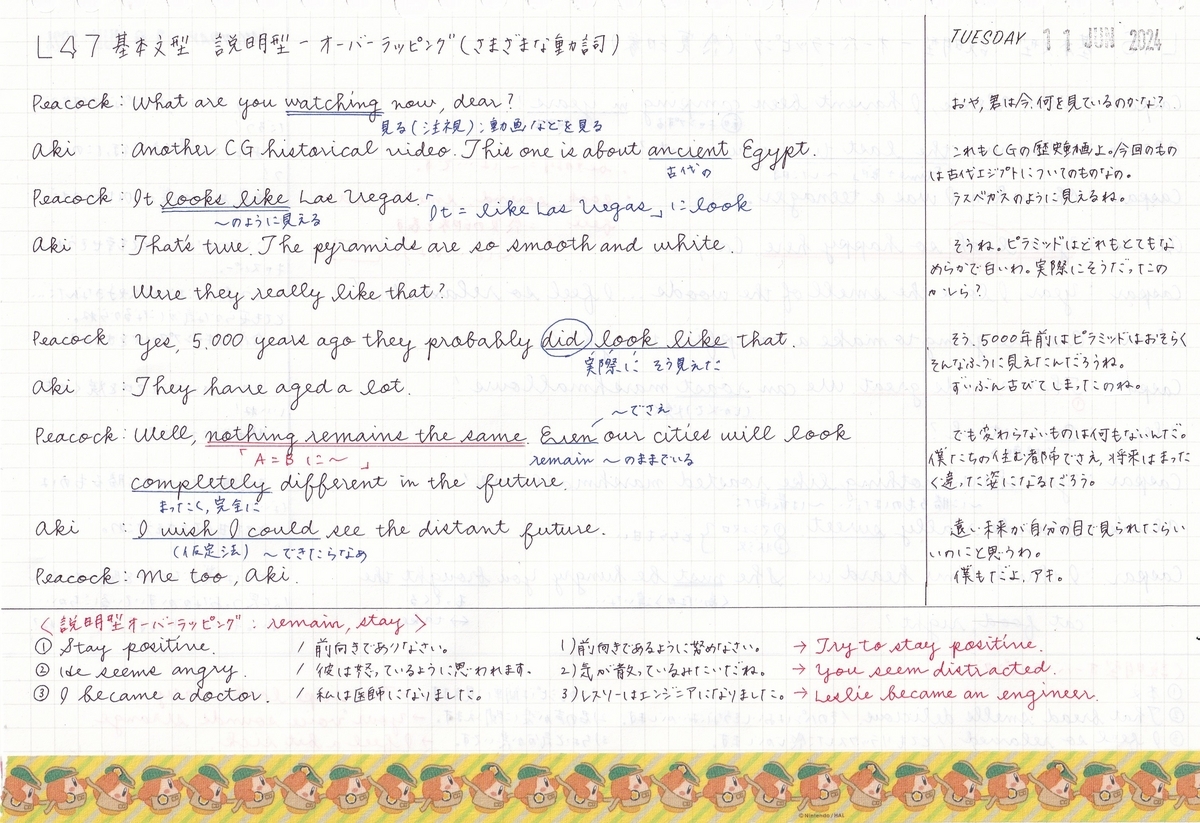 L47 基本文型 説明型－オーバーラッピング(さまざまな動詞)
TUESDAY 11 JUN 2024
Peacock: What are you watching now, dear?
見る(注視):動画などを見る
Aki : Another CG historical video. This one is about ancient Egypt.
古代の
Peacock: It looks like Las Vegas.
～のように見える
「It = like Las Vegas」にlook
Aki : That's true. The pyramids are so smooth and white.
Were they really like that?
Peacock: Yes, 5.000 years ago they probably did look like that.
実際に そう見えた
Aki : They have aged a lot.
～でさえ
Peacock: Well, nothing remains the same. Even our cities will look
「A=Bに～」
remain ～のままでいる
completely different in the future.
まったく, 完全に
Aki : I wish I could see the distant future.
(仮定法) ～できたらなぁ
Peacock: Me too, Aki.
おや、君は今、何を見ているのかな?
これもCGの歴史動画よ。今回のもの
は古代エジプトについてのものなの。
ラスベガスのように見えるね。
そうね。ピラミッドはどれもとてもな
めらかで白いわ。実際にそうだったの
かしら?
そう、5000年前はピラミッドはおそらく
そんなふうに見えたんだろうね。
ずいぶん古びてしまったのね。
でも変わらないものは何もないんだ。
僕たちの住む都市でさえ、将来はまった
く違った姿になるだろう。
遠い未来が自分の目で見られたらい
いのにと思うわ。
僕もだよ、アキ。
〈説明型オーバーラッピング: remain, stay〉
① Stay positive. / 前向きでありなさい。 1)前向きであるように努めなさい。 → Try to stay positive.
② He seems angry. / 彼は怒っているように思われます。 2)気が散っているみたいだね。 → You seem distracted.
③ I became a doctor. / 私は医師になりました。 3)レスリーはエンジニアになりました。 → Leslie became an engineer.
© Nintendo / HAL